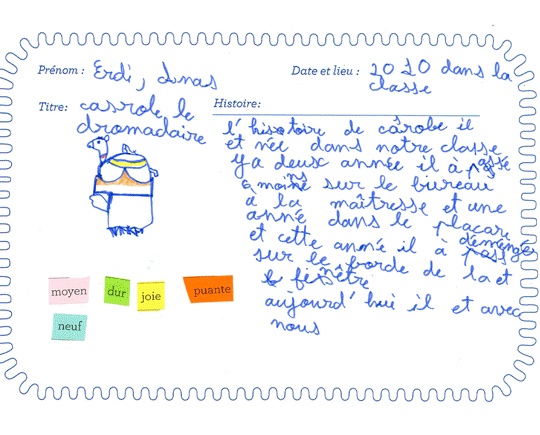 Prénom : Erdi, dnas
Date et lieu : 2010 dans la
classe
Titre: casrole le
dromadaire
Histoire:
l'histoire de cârobe il
et née dans notre classe
ya deux année il à passé
moins sur le bureau
à la maîtresse et une
année dans le placare
et cette année il à déménés
sur le borde de la et
fenêtre
aujourd'hui il et avec
nous
moyen
dur
joie
puante
neuf